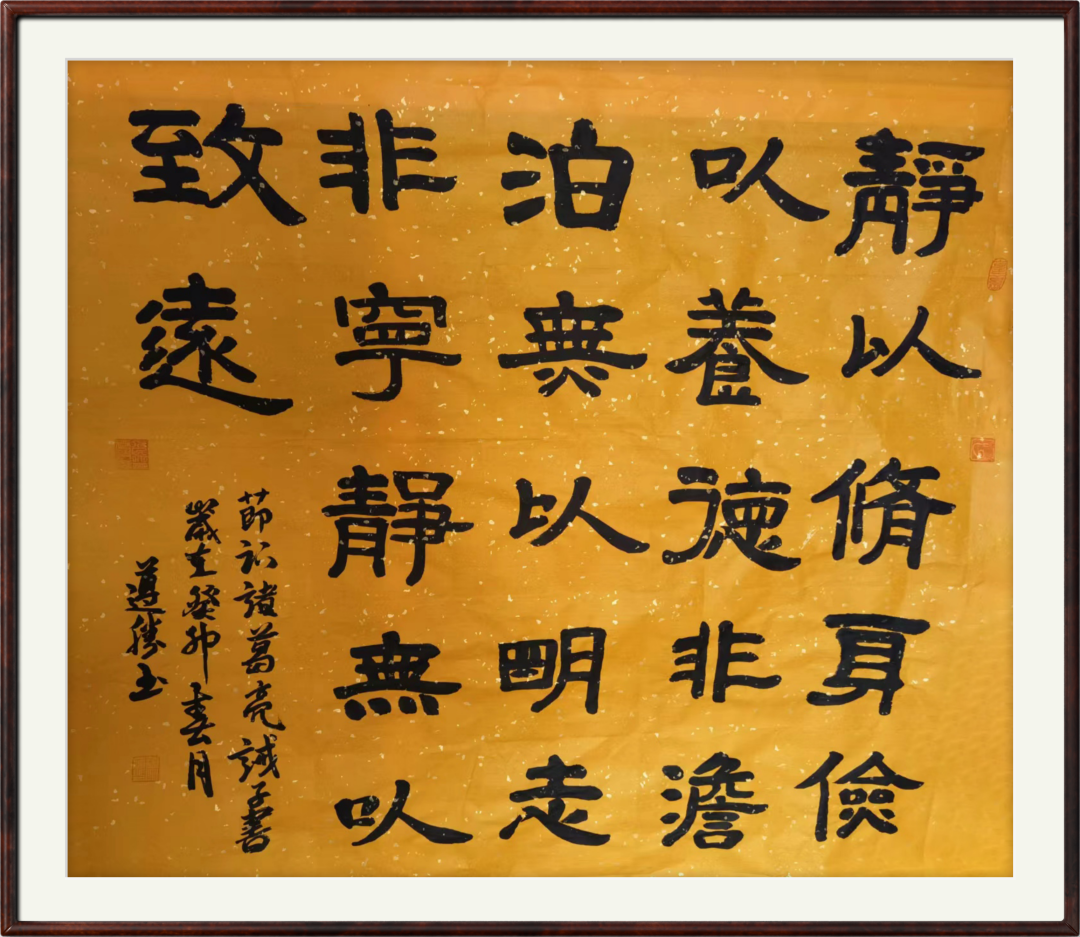 靜以脩身儉
以養德非澹
泊無以明志
非寧靜無以
致遠
節諸葛亮誡子書
歲在癸卯春月
遵勝